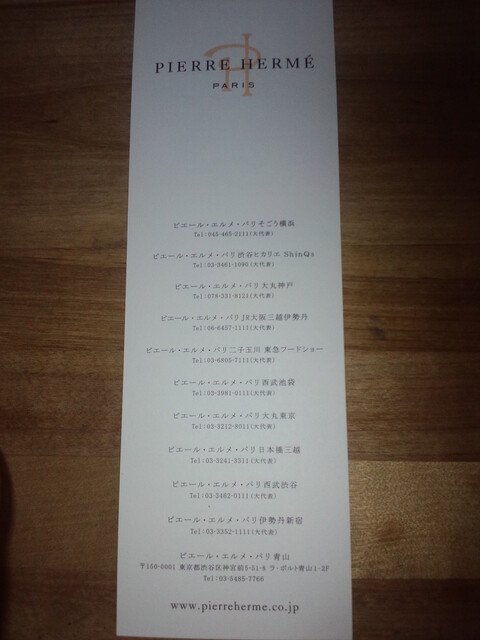 PIERRE HERMÉ
PARIS
ピエール・エルメ・パリそごう横浜
Tel:045-465-2111(大代表)
ピエール・エルメ・パリ渋谷ヒカリエ ShinQs
Tel:03-3461-1090(大代表)
ピエール・エルメ・パリ大丸神戸
Tel:078-331-8121(大代表)
ピエール・エルメ・パリJR大阪三越伊勢丹
Tel:06-6457-1111(大代表)
ピエール・エルメ・パリ二子玉川 東急フードショー
Tel:03-6805-7111(大代表)
ピエール・エルメ・パリ西武池袋
Tel:03-3981-0111(大代表)
ピエール・エルメ・パリ大丸東京
Tel:03-3212-8011(大代表)
ピエール・エルメ・パリ日本橋三越
Tel:03-3241-3311(大代表)
ピエール・エルメ・パリ西武渋谷
Tel:03-3462-0111(大代表)
ピエール・エルメ・パリ伊勢丹新宿
Tel:03-3352-1111(大代表)
ピエール・エルメ・パリ青山
〒150-0001 東京都渋谷区神宮前5-51-8 ラ・ポルト青山1・2F
Tel:03-5485-7766
www.pierreherme.co.jp